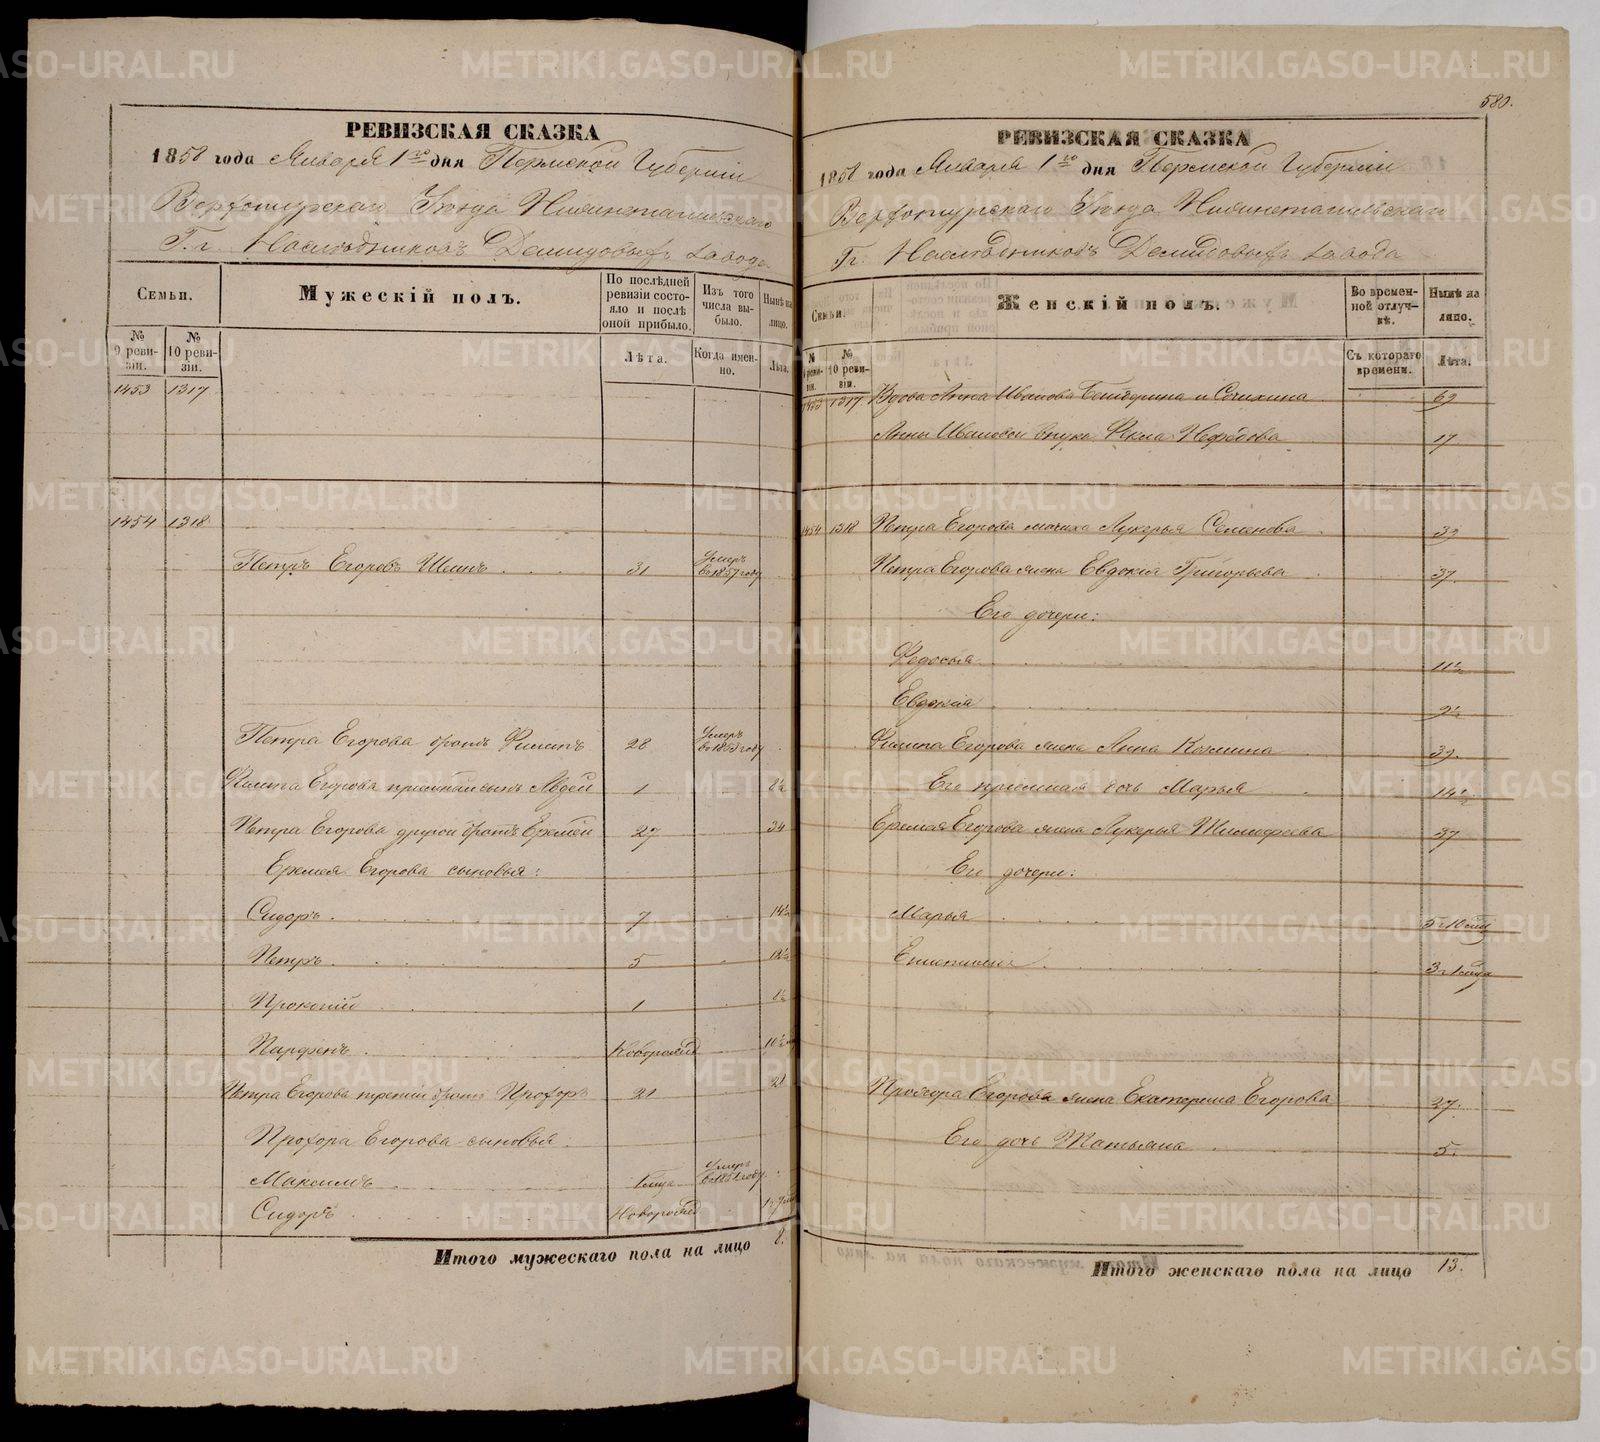 580.
РЕВИЗСКАЯ СКАЗКА
1858 года Января 1го дня Пермской Губерніи
Верхотурскаго Уѣзда Нижнетагильскаго
Г.г. Наслѣдниковъ Демидовыхъ завода
Семьи.
Мужескій полъ.
По послѣдней ревизіи состояло и послѣ оной прибыло.
Изъ того числа выбыло.
Нынѣ на лицо.
№ 9 ревизіи.
№ 10 ревизіи.
Лѣта.
Когда именно.
Лѣта.
1453 1317
1454 1318
Петръ Егоровъ 31 Умеръ въ 1857 году
Петра Егорова братъ Филипъ 28 Умеръ въ 1853 году
Филипа Егорова пріемный сынъ Авдей 1 8½
Петра Егорова другой братъ Еремей 27 34
Еремея Егорова сыновья:
Сидоръ 7 14½
Петръ 5 12½
Прокопій 1 8½
Парфенъ Новорожд
Петра Егорова третій братъ Прохоръ 21 28
Прохора Егорова сыновья:
Максимъ Умеръ въ 1851 году
Сидоръ Новорожд
Итого мужескаго пола на лицо 8.
РЕВИЗСКАЯ СКАЗКА
1858 года Января 1го дня Пермской Губерніи
Верхотурскаго Уѣзда Нижнетагильскаго
Гг. Наслѣдниковъ Демидовыхъ завода
Семьи.
Женскій полъ.
Во временной отлучкѣ.
Нынѣ на лицо.
№ 9 ревизіи.
№ 10 ревизіи.
Съ котораго времени.
Лѣта.
1453 1317 Вдова Анна Иванова 69
Анны Ивановой внука Фекла Нефедова 17
1454 1318 Петра Егорова мачиха Лукерья Семенова 39
Петра Егорова жена Евдокія Григорьева 37.
Его дочери:
Федосья 11½
Евдокія 9½
Филипа Егорова жена Анна Козмина 39.
Его пріемная дочь Марья 14½
Еремея Егорова жена Лукерья Тимофеева 37
Его дочери:
Марья
Епистимія
Прохора Егорова жена Екатерина Егорова 27.
Его дочь Татьяна 5.
Итого женскаго пола на лицо 13.
METRIKI.GASO-URAL.RU